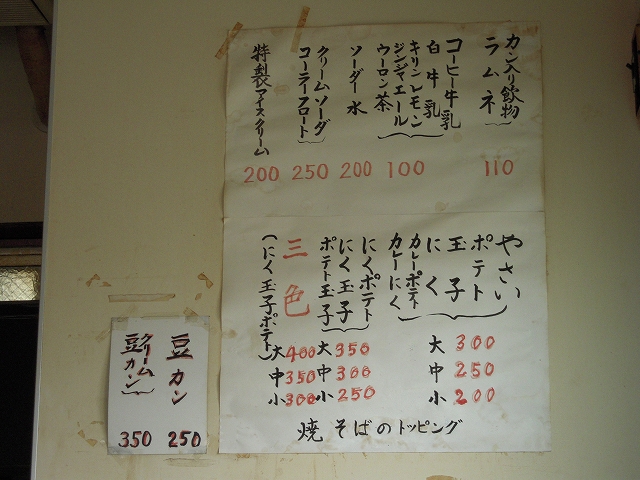 カン入り飲物
ラムネ
110
コーヒー牛乳
白牛乳
キリンレモン
ジンジャエール
ウーロン茶
100
ソーダー水
200
クリームソーダ
コーラーフロート
250
特製アイスクリーム
200
やさい
ポテト
玉子
にく
カレーポテト
カレーにく
大 300
中 250
小 200
にくポテト
にく玉子
ポテト玉子
大 350
中 300
小 250
三色
(にく玉子ポテト)
大 400
中 350
小 300
焼そばのトッピング
豆カン
250
クリーム
豆カン
350